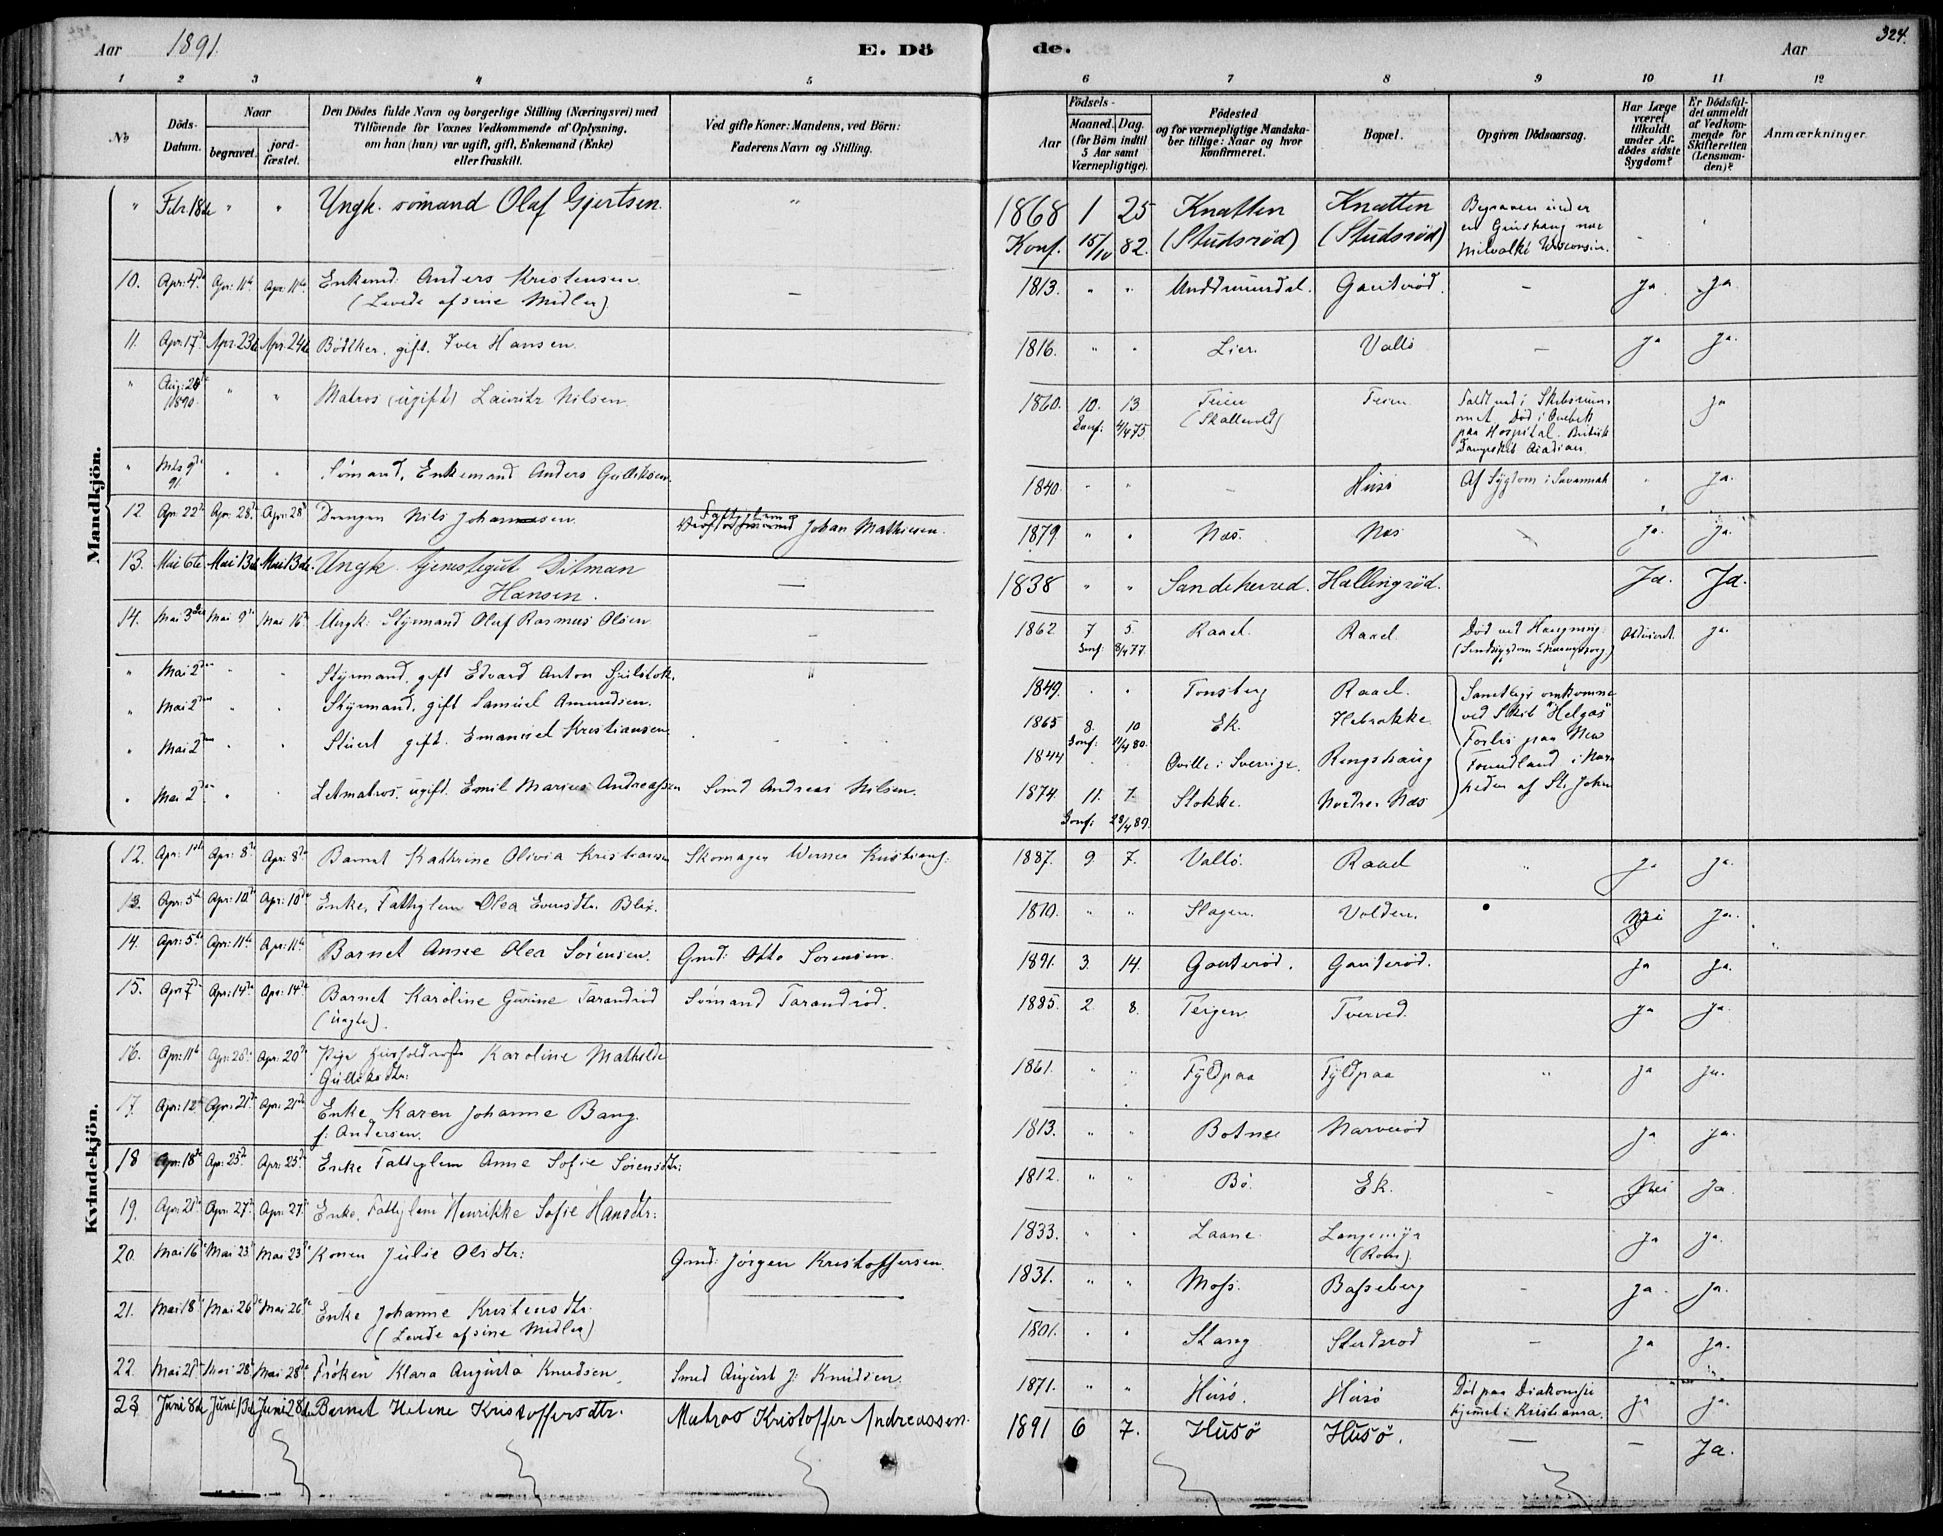 Aar 1891. E. Dö de. Aar 324.
1 2 3 4 5 6 7 8 9 10 11 12
No
Döds-Datum.
Naar
begravet. jord-fæstet.
Den Dödes fulde Navn og borgerlige Stilling (Næringsvei) med
Tilföiende for Voxnes Vedkommende af Oplysning,
om han (hun) var ugift, gift, Enkemand (Enke)
eller fraskilt.
Ved gifte Koner: Mandens, ved Börn:
Faderens Navn og Stilling.
Födsels-
Aar Maaned. Dag.
(for Börn indtil
5 Aar samt
Værnepligtige).
Födested
og for værnepligtige Mandska-
ber tillige: Naar og hvor
konfirmeret.
Bopæl.
Opgiven Dödsaarsag.
Har Læge
været
tilkaldt
under Af-
dödes sidste
Sygdom?
Er Dödsfal-
det anmeldt
af Vedkom-
mende for
Skifteretten
(Lensman-
den)?
Anmærkninger.
Mandkjön.
" Febr. 18de " " Ungk. sömand Olaf Gjertsen. " 1868 1 25 Knatten Knatten Begraven under
Konf. 15/10 82. (Studsröd) (Studsröd) en Milvalki Wisconsin.
10. Apr: 4de Apr: 11te Apr: 11te Enkemd Anders Kristensen — 1813. " " Gauteröd. — Ja Ja
(Levede af sine Midler)
11. Apr: 17de Apr. 23de Apr. 24de Bödtker, gift, Iver Hansen. 1816. " " Lier. Vallö — Ja Ja.
" Aug: 28de 1890. " " Matros (ugift) Lauritz Nilsen. 1860. 10. 13. Teien Teien Faldt ned i Skibsrum-
Konf: 4/4 75 (Skallevold) met, Död i
paa Hospital. Britisk
Dampskib Acadian
Ja
" Mts 9de 91. " " Sömand, Enkemand Anders Gulliksen. 1840. " " — Husö Af Sygdom i Savannah " Ja.
12 Apr. 22de Apr. 28de Apr. 28de Drengen Nils Johannesen Fattiglem Johan Mathiesen. 1879 " " Næs. Næs Ja. Ja.
13. Mai 6te Mai 13de Mai 13de. Ungk. tjenestegut Ditman — 1838 " " Sandeherred. Hallingröd. Ja. Ja.
Hansen.
14. Mai 3die Mai 9de Mai 16de Ungk: Styrmand Oluf Rasmus Olsen — 1862 7 5. Raael. Raael Död ved Hængning. Obduceret. Ja.
Konf: 8/4 77. (Sindssygdom
" Mai 2den " " Styrmand, gift Edvard Anton " 1849. " " Tönsberg Raael. Samtlige omkomne
" Mai 2den " " Styrmand, gift Samuel Amundsen. 1865 8. 10 Ek. ved Skib "Helgas"
Konf: 11/4 80.
" Mai 2den " " Stuert gift. Emanuel Kristiansen 1844 " " i Sverige. Ringshaug Forlis paa New
Foundland i Nær-
" Mai 2den " " Letmatros. ugift. Emil Marius Andreassen Sömd Andreas Nilsen. 1874. 11. 7. Stokke. Nordre Næs heden af St. John
Konf: 28/4 89.
Kvindekjön.
12. Apr: 1ste Apr: 8de Apr: 8de Barnet Kathrine Olivia Kristiansen Skomager Werner Kristians: 1887. 9 7. Vallö. Raael " Ja Ja.
13. Apr: 5te Apr: 10de Apr: 10de Enke, Fattiglem Olea Blix. 1810. " " Slagen. Volden. Nei Ja.
14. Apr: 5te Apr: 11te Apr: 11te Barnet Anne Olea Sörensen. Gmd: Otto Sörensen. 1891. 3. 14. Gauteröd. Gauteröd. Ja Ja.
15. Apr 7de Apr: 14de Apr: 14de Barnet Karoline Gurine Tarandröd Sömand Tarandröd. 1885. 2 8. Teigen Tverved. Ja Ja.
16. Apr: 11te Apr: 20de Apr: 20de Pige Karoline Mathilde 1861. " " Fyldpaa Fyldpaa " Ja Ja.
Gulliksdtr:
17. Apr: 12te Apr: 21de Apr: 21de Enke, Karen Johanne Bang 1813. " " Botne Narveröd Ja Ja.
f: Andersen.
18 Apr: 18de Apr: 25de Apr: 25de Enke Fattiglem Anne Sofie Sörensdtr: 1812. " " Bö. Ek. — Nei Ja.
19. Apr: 21de Apr: 27de Apr: 27de Enke, Fattiglem Henrikke Sofie Hansdtr: 1833. " " Laane Langemyr Ja Ja.
(Rom).
20. Mai 16de Mai 23de Mai 23de Konen Julie Olsdtr: Gmd: Jörgen Kristoffersen. 1831. " " Moss. Basseberg — Ja Ja.
21. Mai 18de Mai 26de Mai 26de Enke Johanne Kristensdtr: 1801. " " Stang Studsröd — Ja Ja.
(Levede af sine Midler)
22. Mai 21de Mai 28de Mai 28de Fröken Klara Augusta Knudsen, Smed August J: Knudsen. 1871. " " Husö. Husö Död paa Diakonisse Ja Ja.
hjemmet i Kristiania.
23 Juni 8de Juni 13de Juni 28de Barnet Helene Kristoffersdtr. Matros Kristoffer Andreassen. 1891 6 7. Husö Husö. — — Ja.